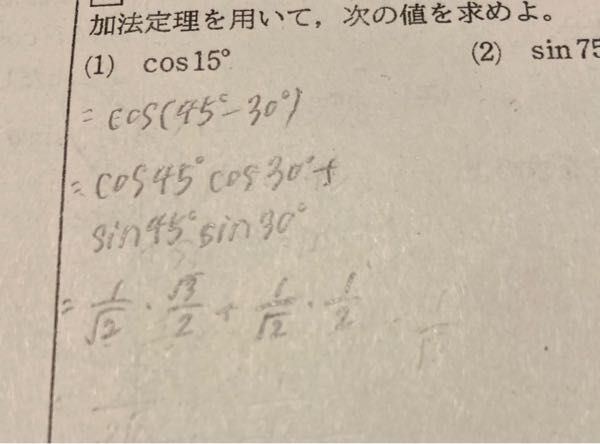 加法定理を用いて，次の値を求めよ。
(1) cos15°
(2) sin75
= cos(45°-30°)
= cos45°cos30°+
sin45°sin30°
= 1/√2 · √3/2 + 1/√2 · 1/2